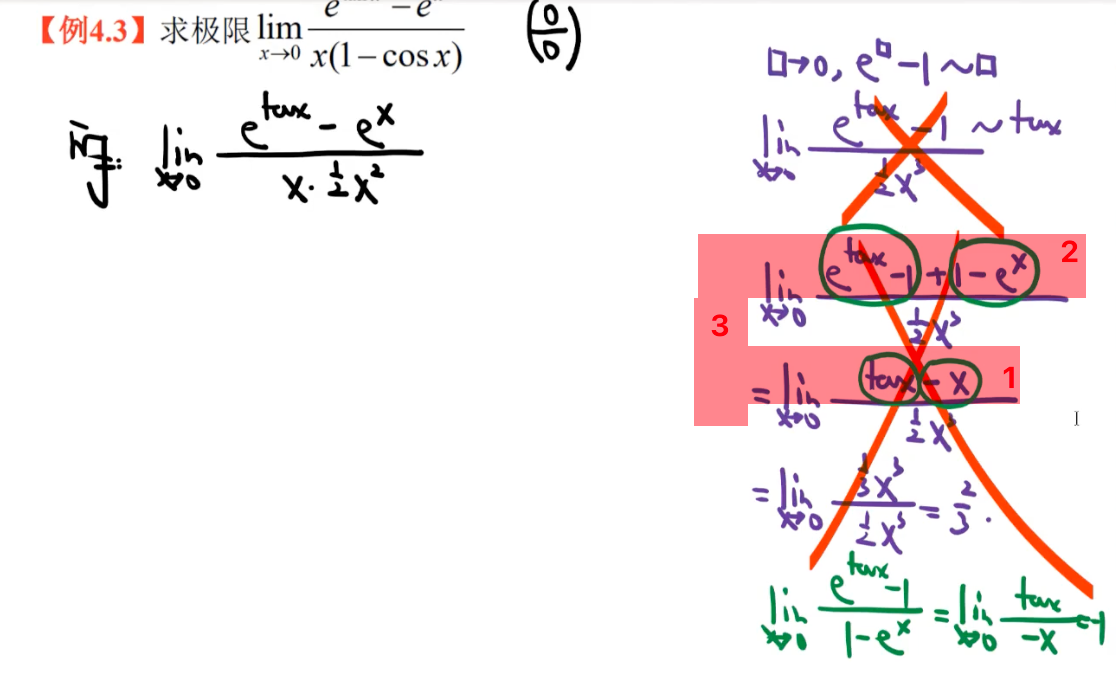 【例4.3】求极限 lim x→0 e – e / x(1 – cos x) (0/0)
lim x→0 e^tanx – e^x / x·½x²
□→0, e^□ –1 ~ □
lim x→0 e^tanx –1 / ½x³ ~ tanx
lim x→0 e^tanx –1 + 1 – e^x / ½x³ 2
3
= lim x→0 tanx – x / ½x³ 1
= lim x→0 ⅓x³ / ½x³ = 2/3.
lim x→0 e^tanx –1 / 1–e^x = lim x→0 tanx / –x = –1